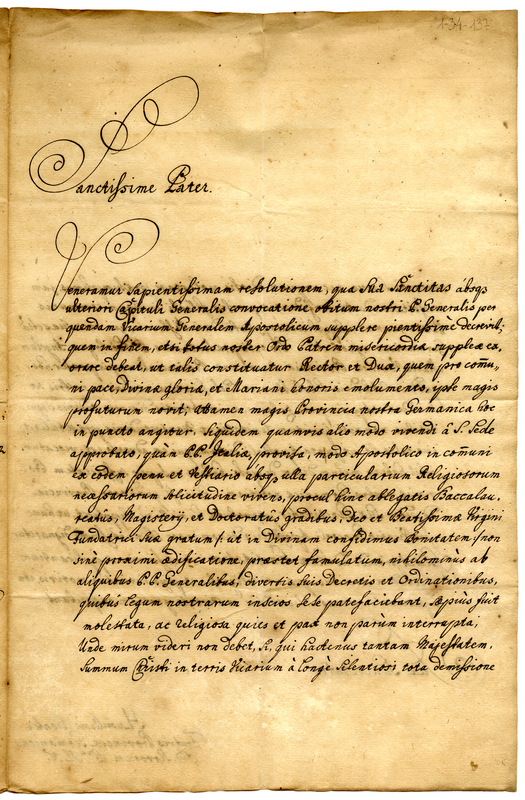 1-34-137
Sanctissime Pater.
Veneramur Sapientissimam resolutionem, qua Sua Sanctitas absqȝ
ulteriori Capituli Generalis convocatione obitum nostri P. Generalis per
quendam Vicarium Generalem Apostolicum supplere pientissime decrevit;
quem in finem, etsi totus noster Ordo Patrem misericordiæ supplex ex,
orare debeat, ut talis constituatur Rector et Dux, quem pro com̃u,
ni pace, divina gloria, et Mariani honoris emolumento, ipse magis
profuturum novit; attamen magis Provincia nostra Germanica hoc
in puncto angitur. Siquidem quamvis alio modo vivendi à S. Sede
approbato, quàm P.P. Italiæ, provisa, modo Apostolico in com̃uni
ex eodem penu et Vestiario absqȝ ulla particularium Religiosorum
necessariorum solicitudine vivens, procul hinc ablegatis Baccalau,
reatûs, Magisterij, et Doctoratûs gradibus, Deo et Beatissimæ Virgini
Fundatrici Suæ gratum /: ut in Divinam confidimus Bonitatem :/ non
sinè proximi ædificatione, præstet famulatum, nihilominùs ab
aliquibus P.P. Generalibus, diversis suis Decretis et Ordinationibus,
quibus legum nostrarum inscios se se patefaciebant, sæpiùs fuit
molestata, ac religiosa quies et pax non parum interrupta;
Unde mirum videri non debet, si, qui hactenus tantam Majestatem,
Summum Christi in terris Vicarium à longè silentiosi tota demissione